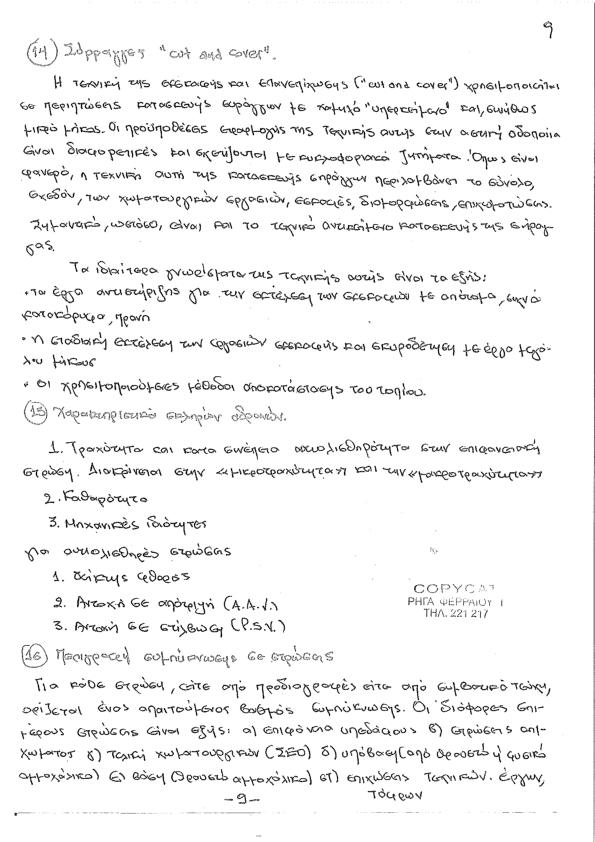 9
(14) Σύρραγγες "cut and cover".
Η τεχνική της εκσκαφής και επανεπίχωσης ("cut and cover") χρησιμοποιείται
σε περιπτώσεις κατασκευής συράγγων με χαμηλό "υπερκείμενο" και, συνήθως
μικρό μήκος. Οι προϋποθέσεις εφαρμογής της τεχνικής αυτής στην αστική οδοποιία
είναι διαφορετικές και σχετίζονται με κυκλοφοριακά ζητήματα. Όπως είναι
φανερό, η τεχνική αυτή της κατασκευής σηράγγων περιλαμβάνει το σύνολο,
σχεδόν, των χωματουργικών εργασιών, εκσκαφές, διαμορφώσεις, επιχωματώσεις.
Σημαντικό, ωστόσο, είναι και το τεχνικό αντικείμενο κατασκευής της σήραγ-
γας.
Τα ιδιαίτερα γνωρίσματα της τεχνικής αυτής είναι τα εξής:
• τα έργα αντιστήριξης για την εκτέλεση των εκσκαφών με απότομα, συχνά
κατακόρυφα, πρανή
• η σταδιακή εκτέλεση των εργασιών εκσκαφής και σκυροδέτηση με έργο μεγά-
λου μήκους
• οι χρησιμοποιούμενες μέθοδοι αποκατάστασης του τοπίου.
(15) Χαρακτηριστικά σκληρών αδρανών.
1. Τραχύτητα και κατά συνέπεια αντιολισθηρότητα στην επιφανειακή
στρώση. Διακρίνεται στην «μικροτραχύτητα» και την «μακροτραχύτητα»
2. Καθαρότητα
3. Μηχανικές ιδιότητες
για αντιολισθηρές στρώσεις
1. δείκτης φθοράς
2. Αντοχή σε απότριψη (A.A.V.)
3. Αντοχή σε στίλβωση (P.S.V.)
COPYCAT
ΡΗΓΑ ΦΕΡΡΑΙΟΥ 1
ΤΗΛ. 221 217
(16) Περιγραφή συμπύκνωσης σε στρώσεις
Για κάθε στρώση, είτε από προδιαγραφές είτε από συμβατικά τεύχη,
ορίζεται ένας απαιτούμενος βαθμός συμπύκνωσης. Οι διάφορες επι-
μέρους στρώσεις είναι εξής: α) επιφάνεια υπεδάφους β) στρώσεις επι-
χώματος γ) τελική χωματουργικών (ΣΕΟ) δ) υπόβαση (από θραυστό ή φυσικό
αμμοχάλικο) ε) βάση (θραυστό αμμοχάλικο) στ) επιχώσεις τεχνικών. έργων,
τάφρων
-9-